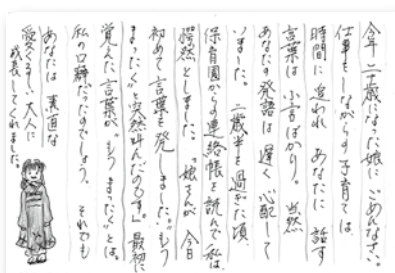 今年二十歳になった娘に ごめんなさい。
仕事をしながらの子育ては
時間に追われ あなたに 話す
言葉は 小言ばかり。 当然
あなたの発語は 遅く 心配して
いました。 二歳半を過ぎた頃
保育園からの連絡帳を読んで 私は
愕然としました。「娘さんが 今日
初めて言葉を発しました。"もう
まったく"と突然叫んだのです」最初に
覚えた言葉が。"もう まったく"とは。
私の口癖だったのでしょう。 それでも
あなたは 素直な
愛くるしい大人に
成長してくれました。